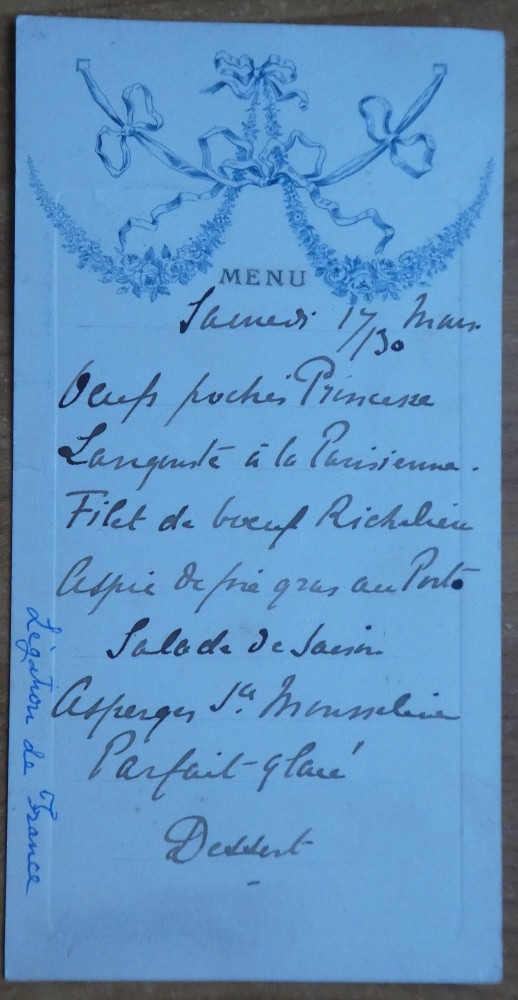 MENU
Samedi 17 Mars
/30
Oeufs pochés Princesse
Langouste à la Parisienne.
Filet de boeuf Richelieu
Aspic de foie gras au Porto
Salade de Saison
Asperges Sce Mousseline
Parfait glacé
Dessert
Légation de France